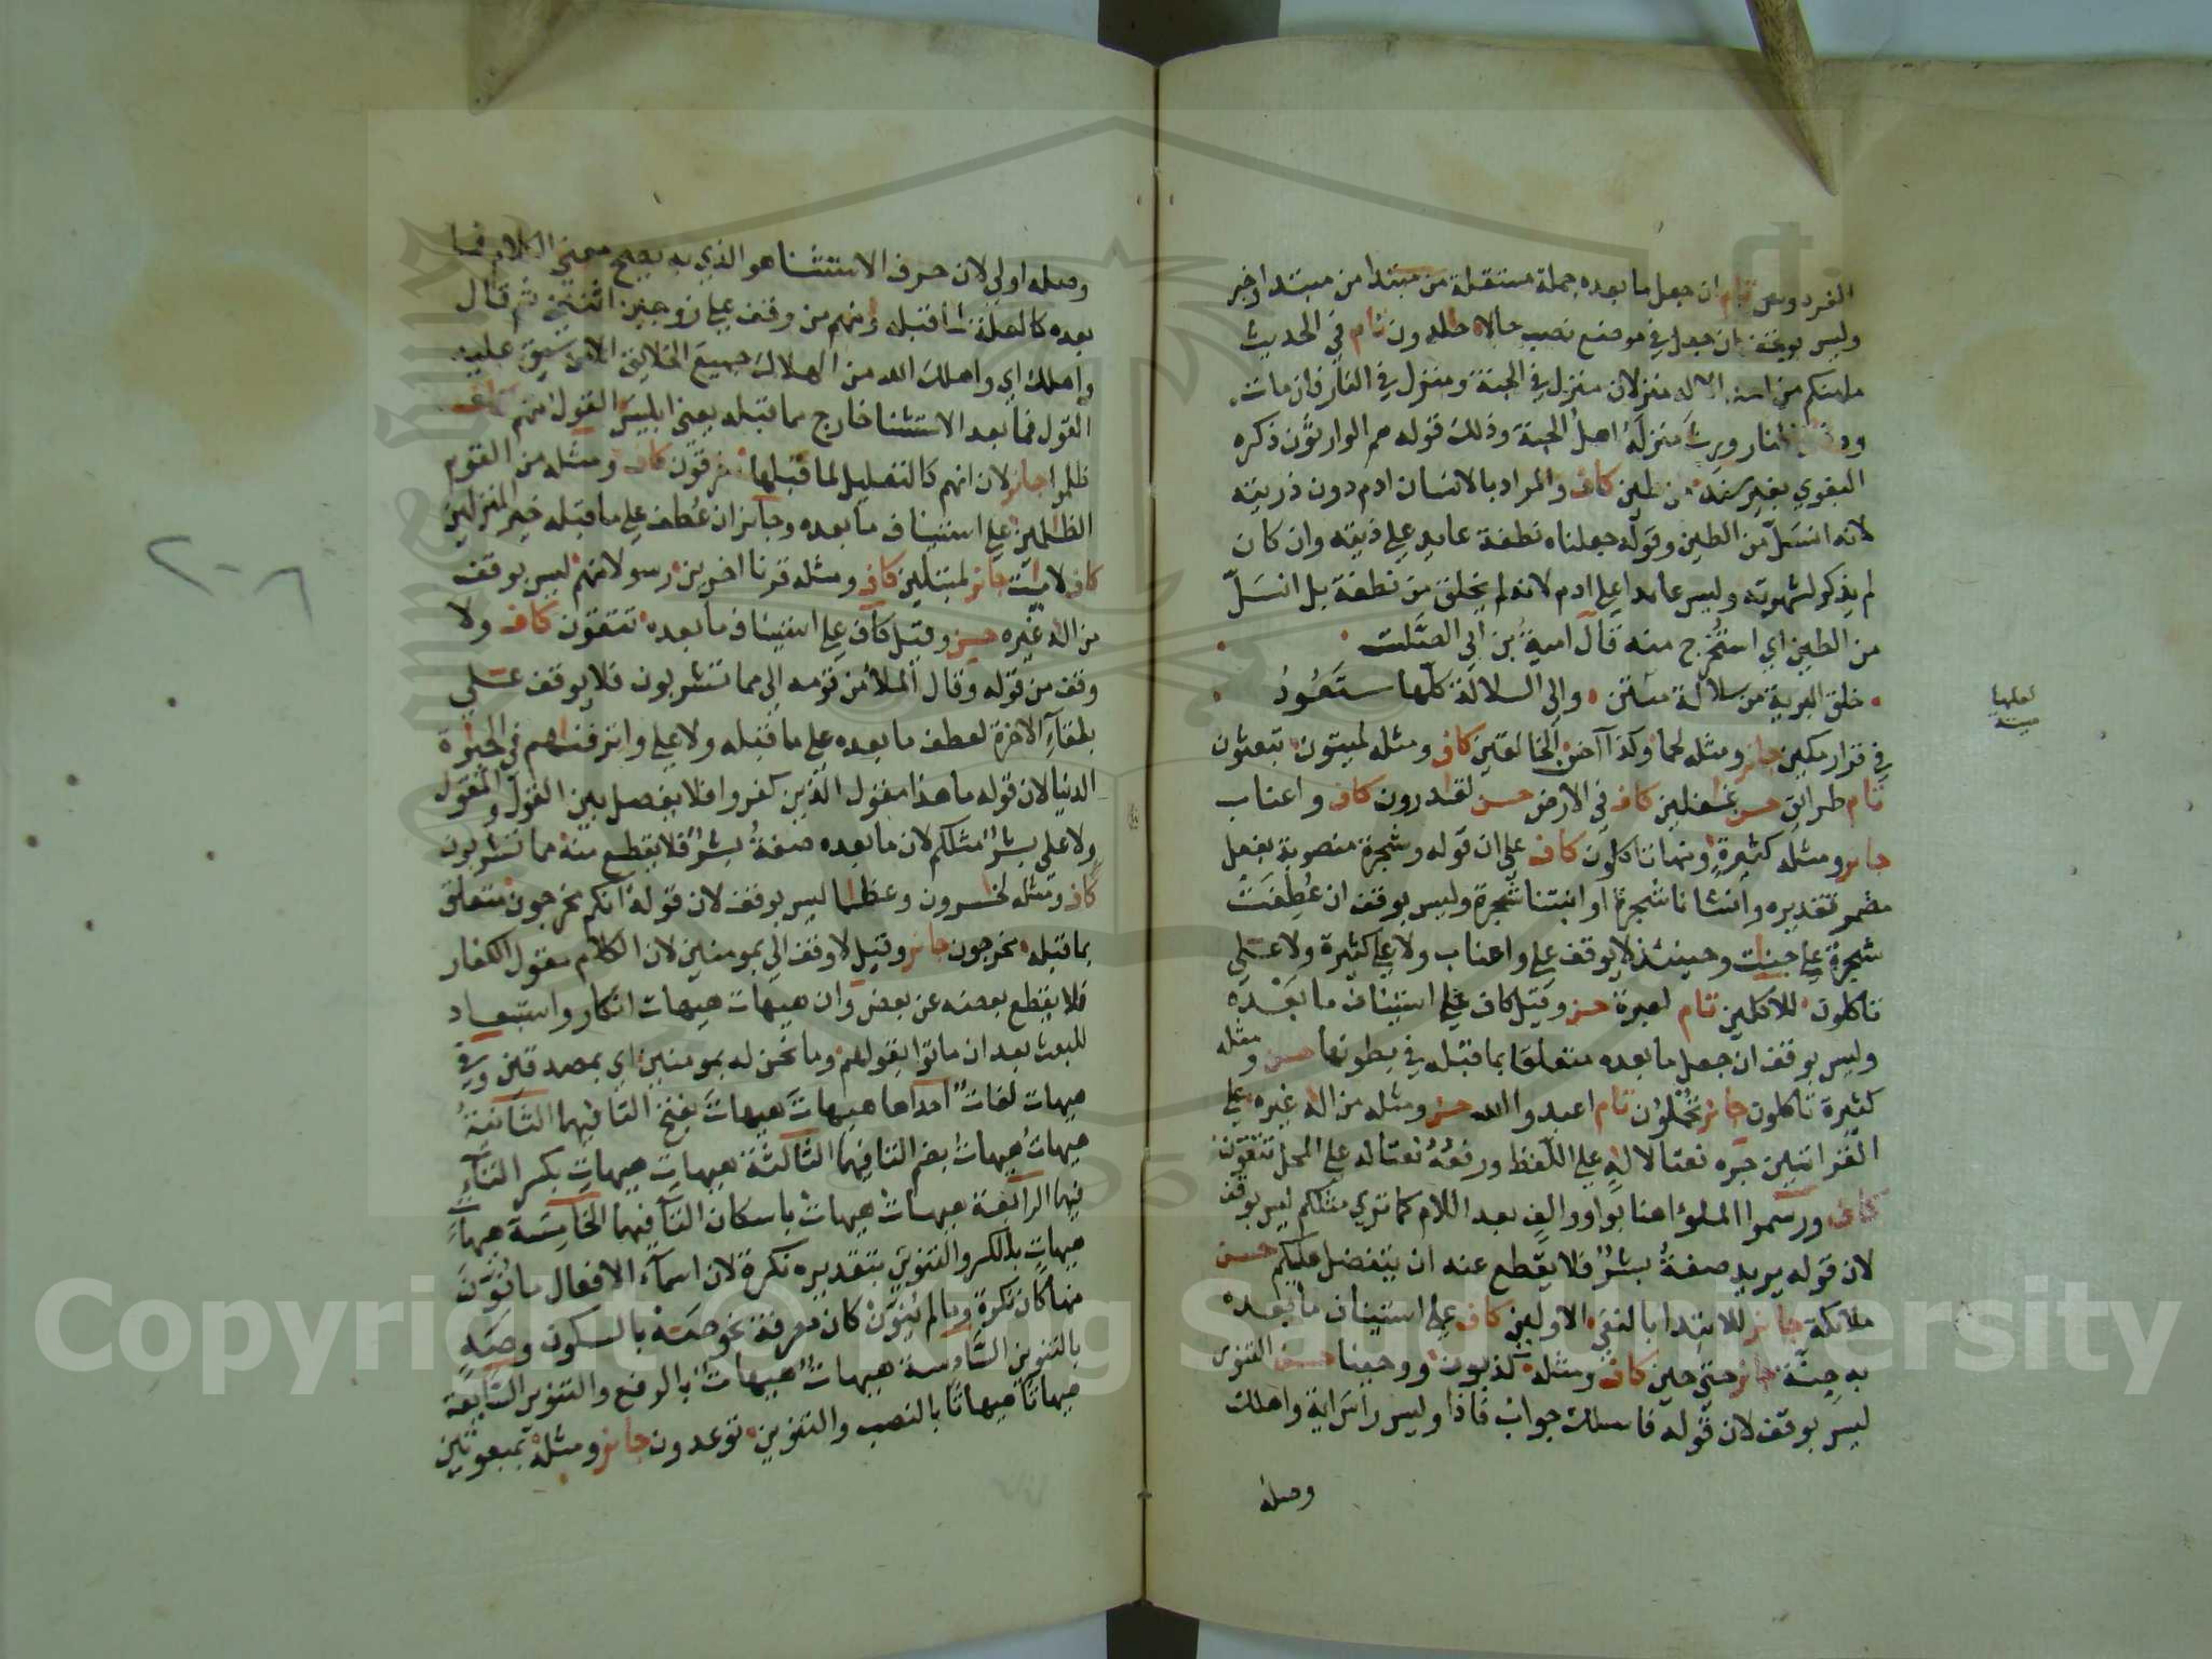 الفردوس تام ان جعل ما بعده جملة مستقلة من مبتدا من مبتدا وخبر
وليس بوقف ان جعل في موضع نصب حالا خلدون تام في الحديث
ما منكم من احد الا له منزلان منزل في الجنة ومنزل في النار فان مات
ودخل النار ورث منزله اهل الجنة وذلك قوله هم الوارثون ذكره
البغوي بغير سند من طين كاف والمراد بالانسان ادم دون ذريته
لانه انسل من الطين وقوله جعلناه نطفة عايد على ذريته وان كان
لم يذكر لشهرته وليس عايدا على ادم لانه لم يخلق من نطفة بل انسل
من الطين اي استخرج منه قال امية بن ابي الصلت
خلق البرية من سلالة منتن والى السلالة كلها ستعود
في قرار مكين جايز ومثله لحما وكذا آخر الخالقين كاف ومثله لميتون تبعثون
تام طرائق حسن غفلين كاف في الارض حسن لقدرون كاف واعناب
جايز ومثله كثيرة ومنها تاكلون كاف على ان قوله وشجرة منصوبة بفعل
مضمر تقديره وانشانا شجرة او انبتنا شجرة وليس بوقف ان عطفت
شجرة على جنات وحينئذ لا يوقف على واعناب ولا على كثيرة ولا على
تاكلون للاكلين تام لعبرة حسن وقيل كاف على استيناف ما بعده
وليس بوقف ان جعل ما بعده متعلقا بما قبله في بطونها حسن ومثله
كثيرة تاكلون جايز تحملون تام اعبدوا الله حسن ومثله من اله غيره على
القراتين جره نعتا لاله على اللفظ ورفعه نعتا له على المحل تتقون
كاف ورسموا الملؤا هنا بواو والف بعد اللام كما ترى مثلكم ليس بوقف
لان قوله يريد صفة بشر فلا يقطع عنه ان يتفضل عليكم حسن
ملائكة جايز للابتدا بالنفي الاولين كاف على استيناف ما بعده
به جنة جايز حتى حين كاف ومثله كذبون ووحينا حسن التنور
ليس بوقف لان قوله فاسلك جواب فاذا وليس راس اية واهلك
وصله
لعلها
وصله اولى لان حرف الاستثنا هو الذي به يصح معنى الكلام فما
بعده كالعلة لما قبله ومنهم من وقف على زوجين اثنين ثم قال
واهلك اي واهلك الله من الهلاك جميع الخلائق الا من سبق عليه
القول فما بعد الاستثنا خارج مما قبله يعني ابليس القول منهم كاف
ظلموا جايز لان انهم كالتعليل لما قبلها مغرقون كاف ومثله من القوم
الظلمين على استيناف ما بعده وجايز ان عطف على ما قبله خير المنزلين
كاف لايات جايز لمبتلين كاف ومثله قرنا اخرين رسولا منهم ليس بوقف
من اله غيره حسن وقيل كاف على استيناف ما بعده تتقون كاف ولا
وقف من قوله وقال الملأ من قومه الى مما تشربون فلا يوقف على
بلقآء الاخرة لعطف ما بعده على ما قبله ولا على واترفنهم في الحيوة
الدنيا لان قوله ما هذا مقول الذين كفروا فلا يفصل بين القول والمقول
ولا على بشر مثلكم لان ما بعده صفة بشر فلا يقطع منه مما تشربون
كاف ومثله لخسرون وعظما ليس بوقف لان قوله انكم مخرجون متعلق
بما قبله مخرجون جايز وقيل لا وقف الى بمومنين لان الكلام مقول الكفار
فلا يقطع بعضه عن بعض وان هيهات هيهات انكار واستبعاد
للبعث بعد ان ماتوا بقولهم وما نحن له بمومنين اي بمصدقين وفي
هيهات لغات احداها هيهات هيهات بفتح التا فيهما الثانية
هيهات هيهات بضم التا فيهما الثالثة هيهات هيهات بكسر التآء
فيهما الرابعة هيهات هيهات باسكان التآء فيهما الخامسة هيهات
هيهات بالكسر والتنوين بتقديره نكرة لان اسمآء الافعال ما نون
منها كان نكرة وما لم ينون كان معرفة نحو صه بالسكون وصه
بالتنوين السادسة هيهات هيهات بالرفع والتنوين السابعة
هيهاتا هيهاتا بالنصب والتنوين توعدون جايز ومثله بمبعوثين
Copyright © King Saud University